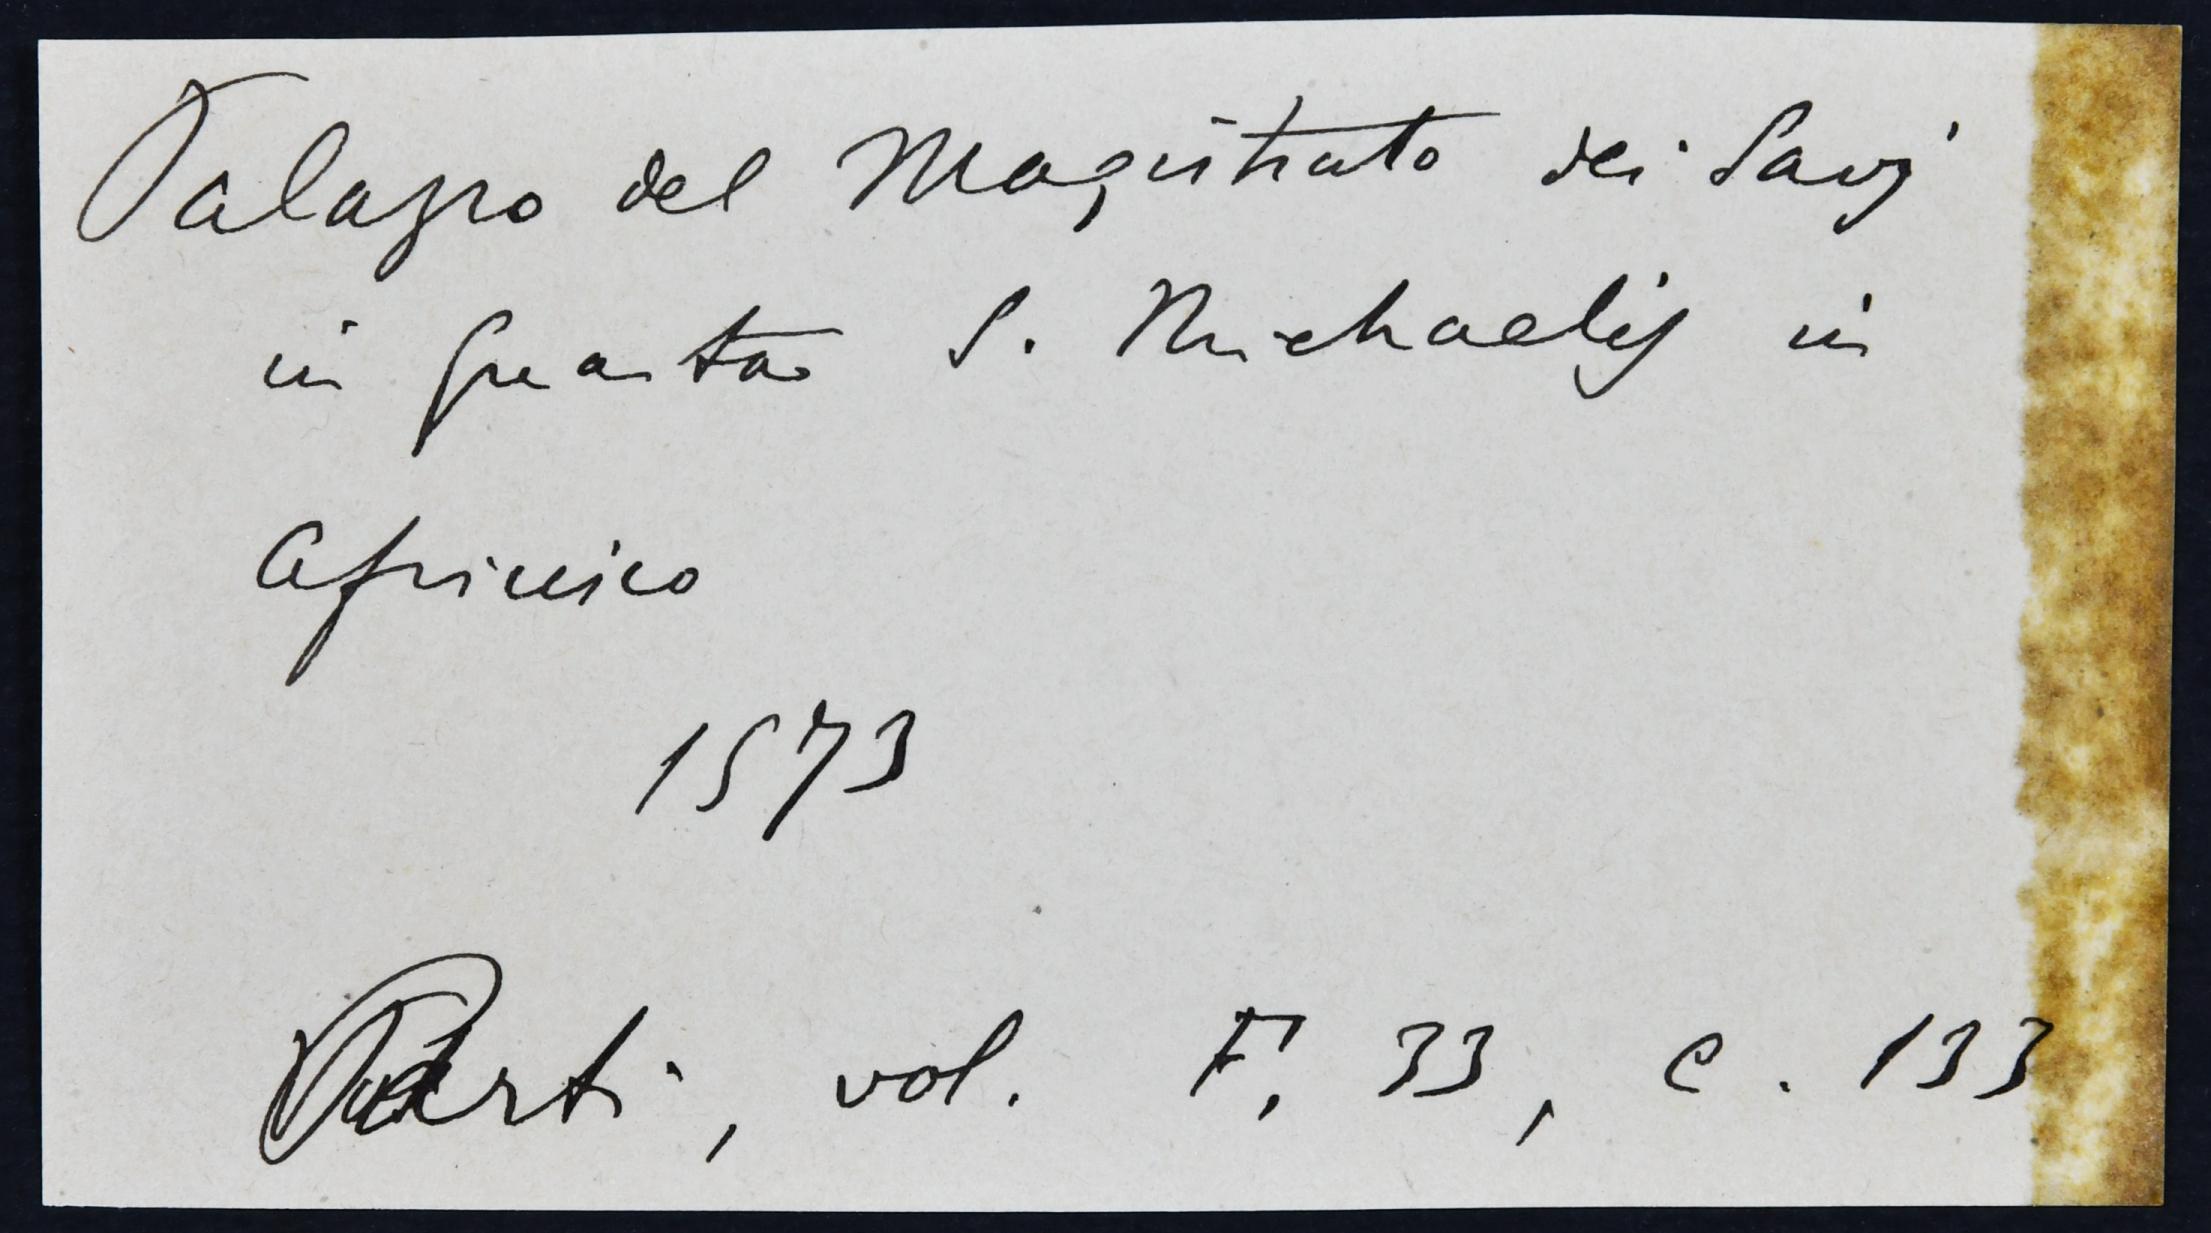 Palazzo del Magistrato dei Savj
in guaita S. Michaelis in
Africisco
1573
Parti, vol. F. 33, c. 133